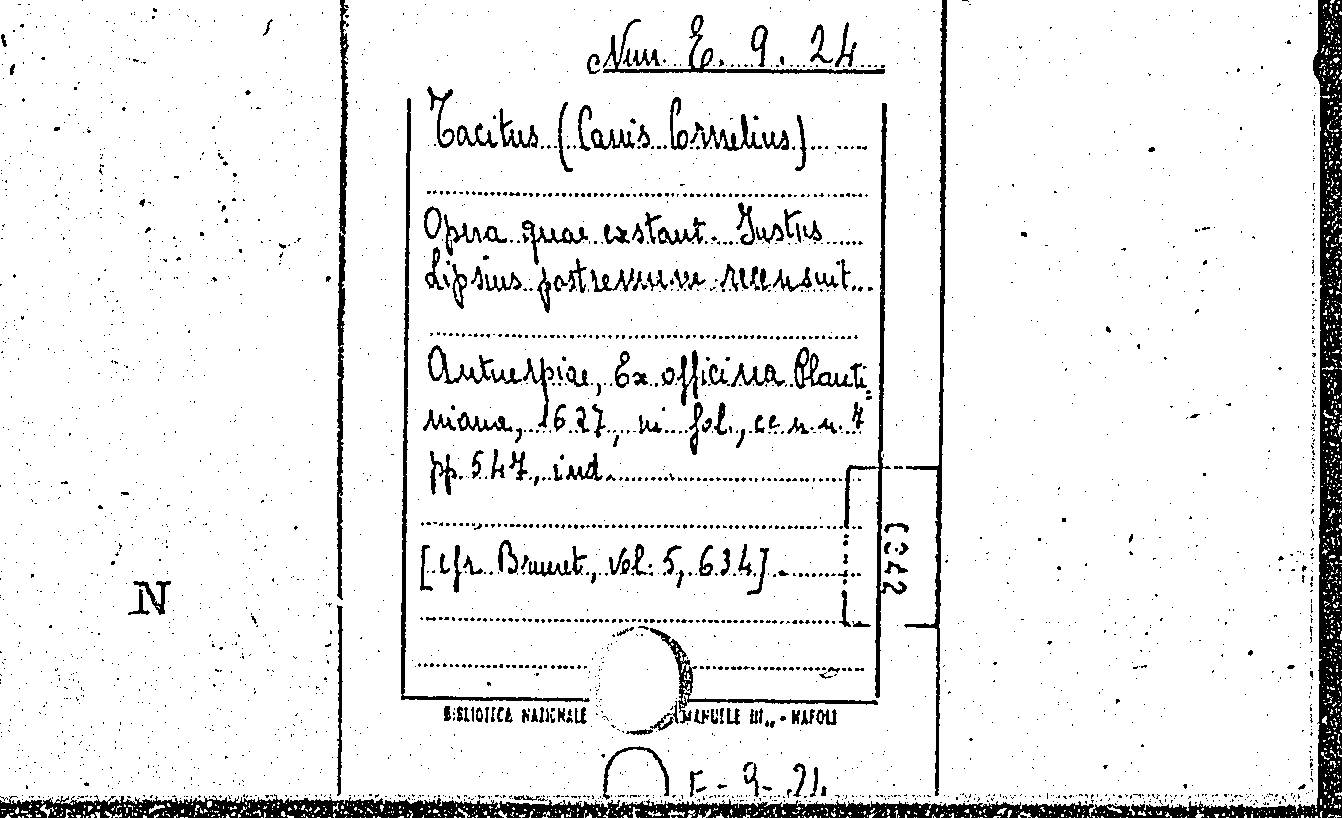 Num. E. 9. 24
Tacitus (Caius Cornelius)
Opera quae exstant. Iustus
Lipsius postremum recensuit.
Antuerpiae, Ex officina Planti=
niana, 1627, in fol., cc n. n. 7
pp. 547, ind.
[cfr. Brunet, vol. 5, 634].
N
BIBLIOTECA NAZIONALE
MANUELE III„ - NAPOLI